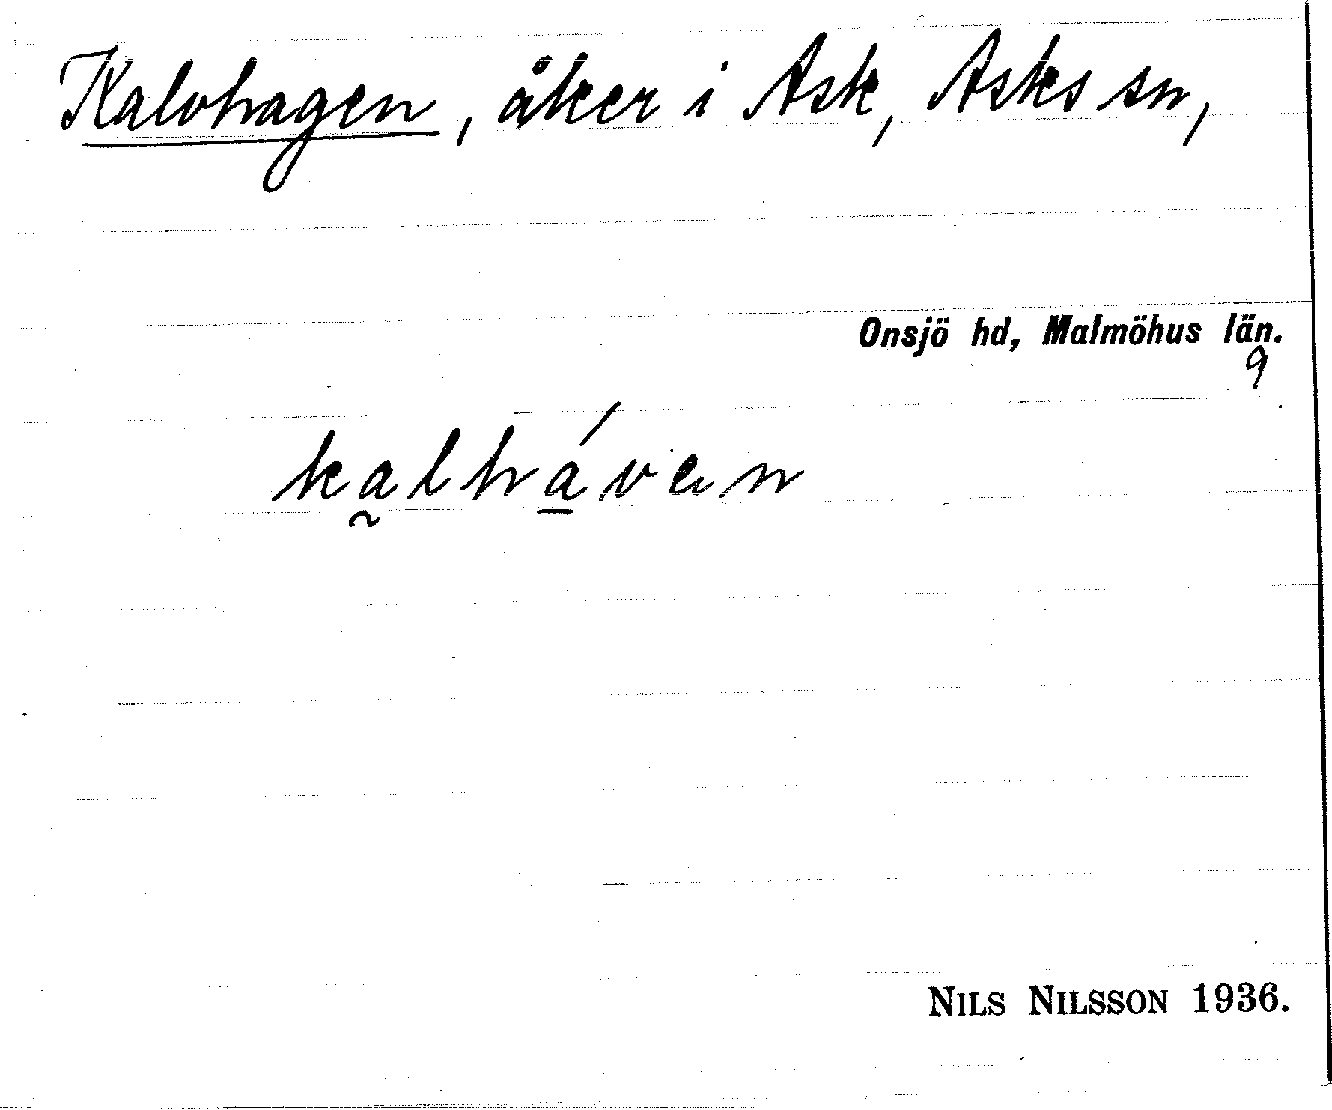 Kalvhagen, åker i Ask, Asks sn,
Onsjö hd, Malmöhus län.
9
ka̰lhá̱van
NILS NILSSON 1936.